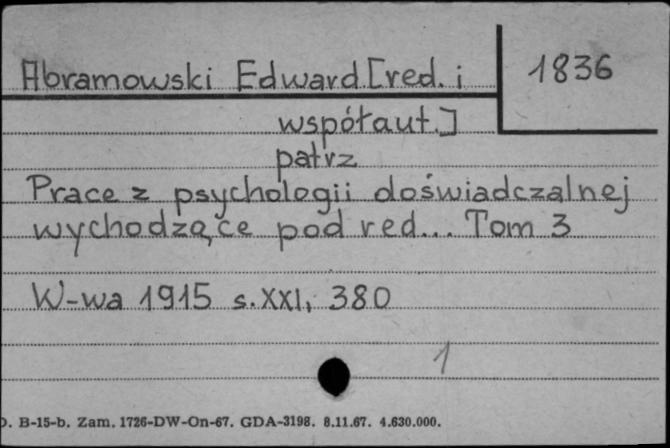 Abramowski Edward [red. i
1836
współaut.]
patrz
Prace z psychologii doświadczalnej
wychodzące pod red... Tom 3
W-wa 1915 s. XXI, 380
1
D. B-15-b. Zam. 1726-DW-On-67. GDA-3198. 8.11.67. 4.630.000.